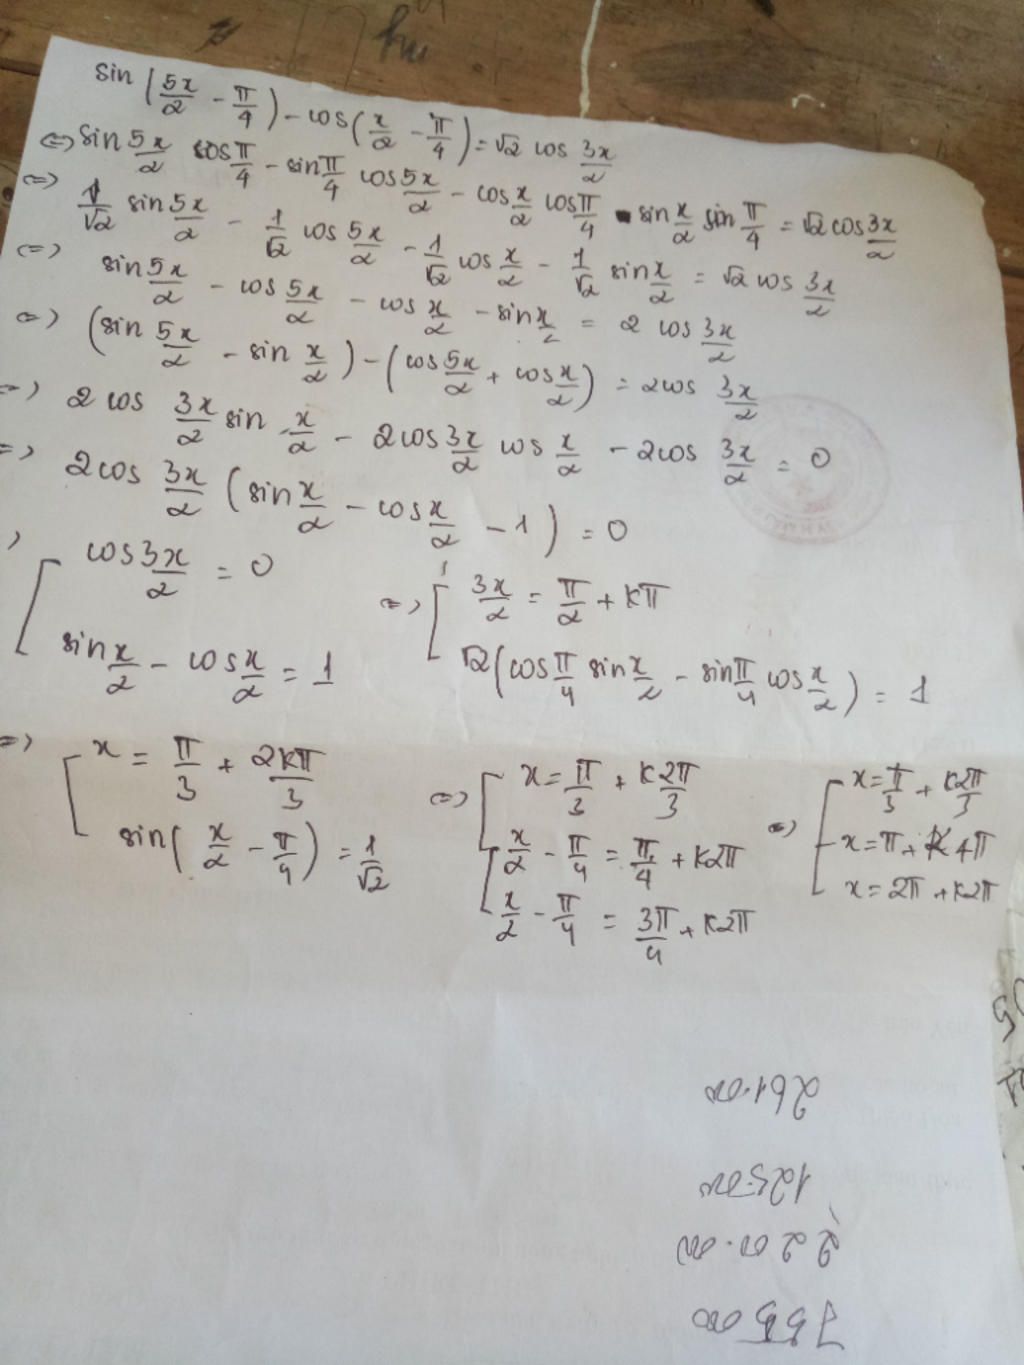 sin(5x/2 - π/4) - cos(x/2 - π/4) = √2 cos 3x/2
<=> sin 5x/2 cos π/4 - sin π/4 cos 5x/2 - cos x/2 cos π/4 - sin x/2 sin π/4 = √2 cos 3x/2
<=> 1/√2 sin 5x/2 - 1/√2 cos 5x/2 - 1/√2 cos x/2 - 1/√2 sin x/2 = √2 cos 3x/2
<=> sin 5x/2 - cos 5x/2 - cos x/2 - sin x/2 = 2 cos 3x/2
<=> (sin 5x/2 - sin x/2) - (cos 5x/2 + cos x/2) = 2cos 3x/2
=> 2 cos 3x/2 sin x/2 - 2cos 3x/2 cos x/2 - 2cos 3x/2 = 0
=> 2cos 3x/2 (sin x/2 - cos x/2 - 1) = 0
[ cos 3x/2 = 0 => [ 3x/2 = π/2 + kπ
sin x/2 - cos x/2 = 1 √2(cos π/4 sin x/2 - sin π/4 cos x/2) = 1
=> [ x = π/3 + 2kπ/3 <=> [ x = π/3 + k2π/3 => [ x = π/3 + k2π/3
sin(x/2 - π/4) = 1/√2 x/2 - π/4 = π/4 + k2π x = π + k4π
x/2 - π/4 = 3π/4 + k2π x = 2π + k2π